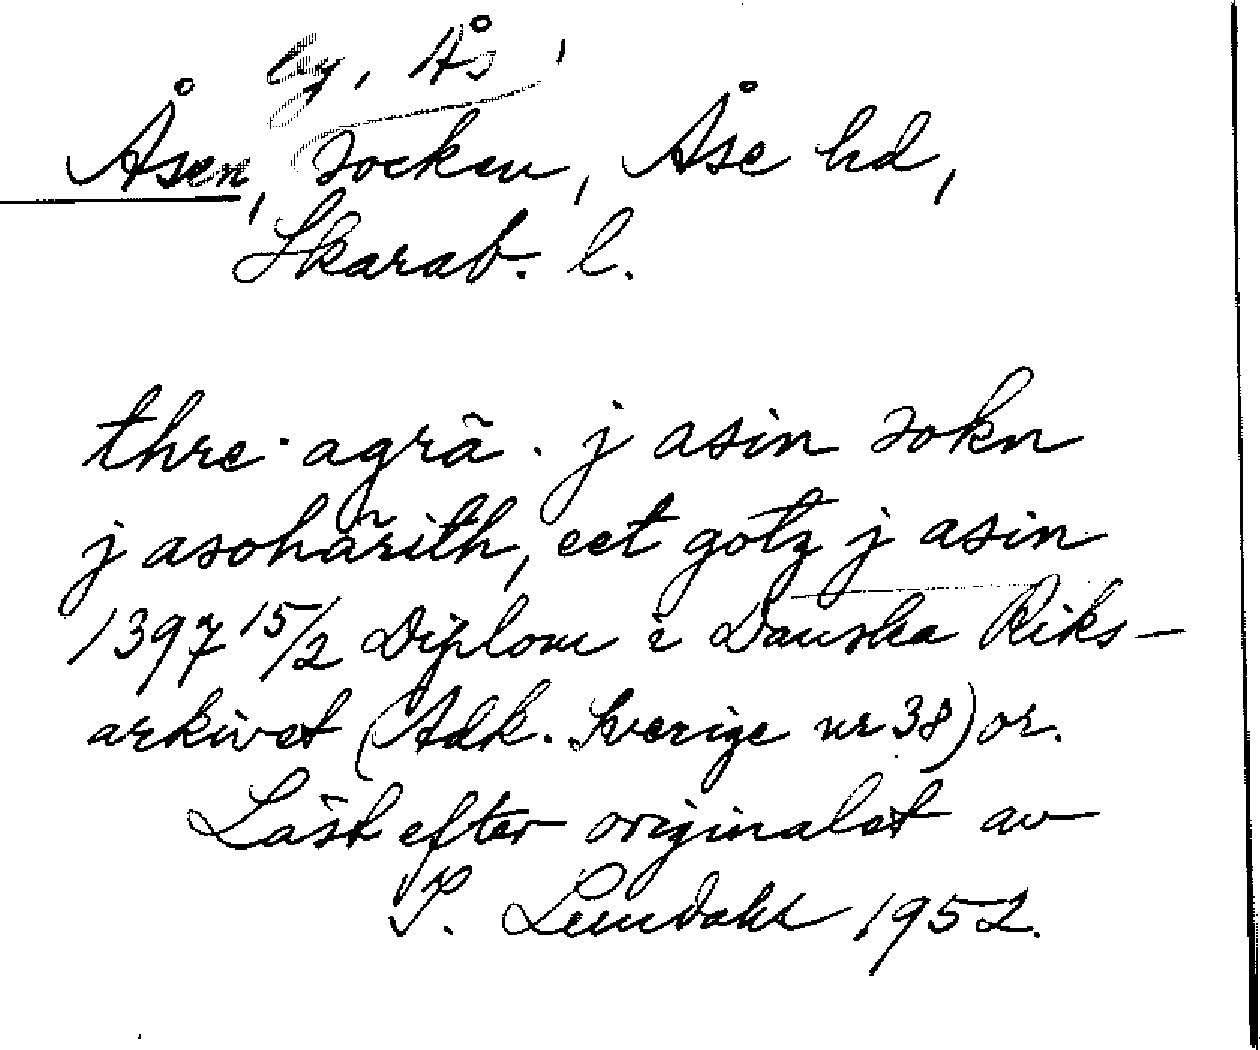 eg. Ås
Åsen, socken, Åse hd,
Skarab. l.
thre · agrā · j asin sokn
j asohārith, eet gotz j asin
1397 15/2 Diplom i Danska Riks-
arkivet (Adk. Sverige nr 38) or.
Läst efter originalet av
I. Lundahl 1952.